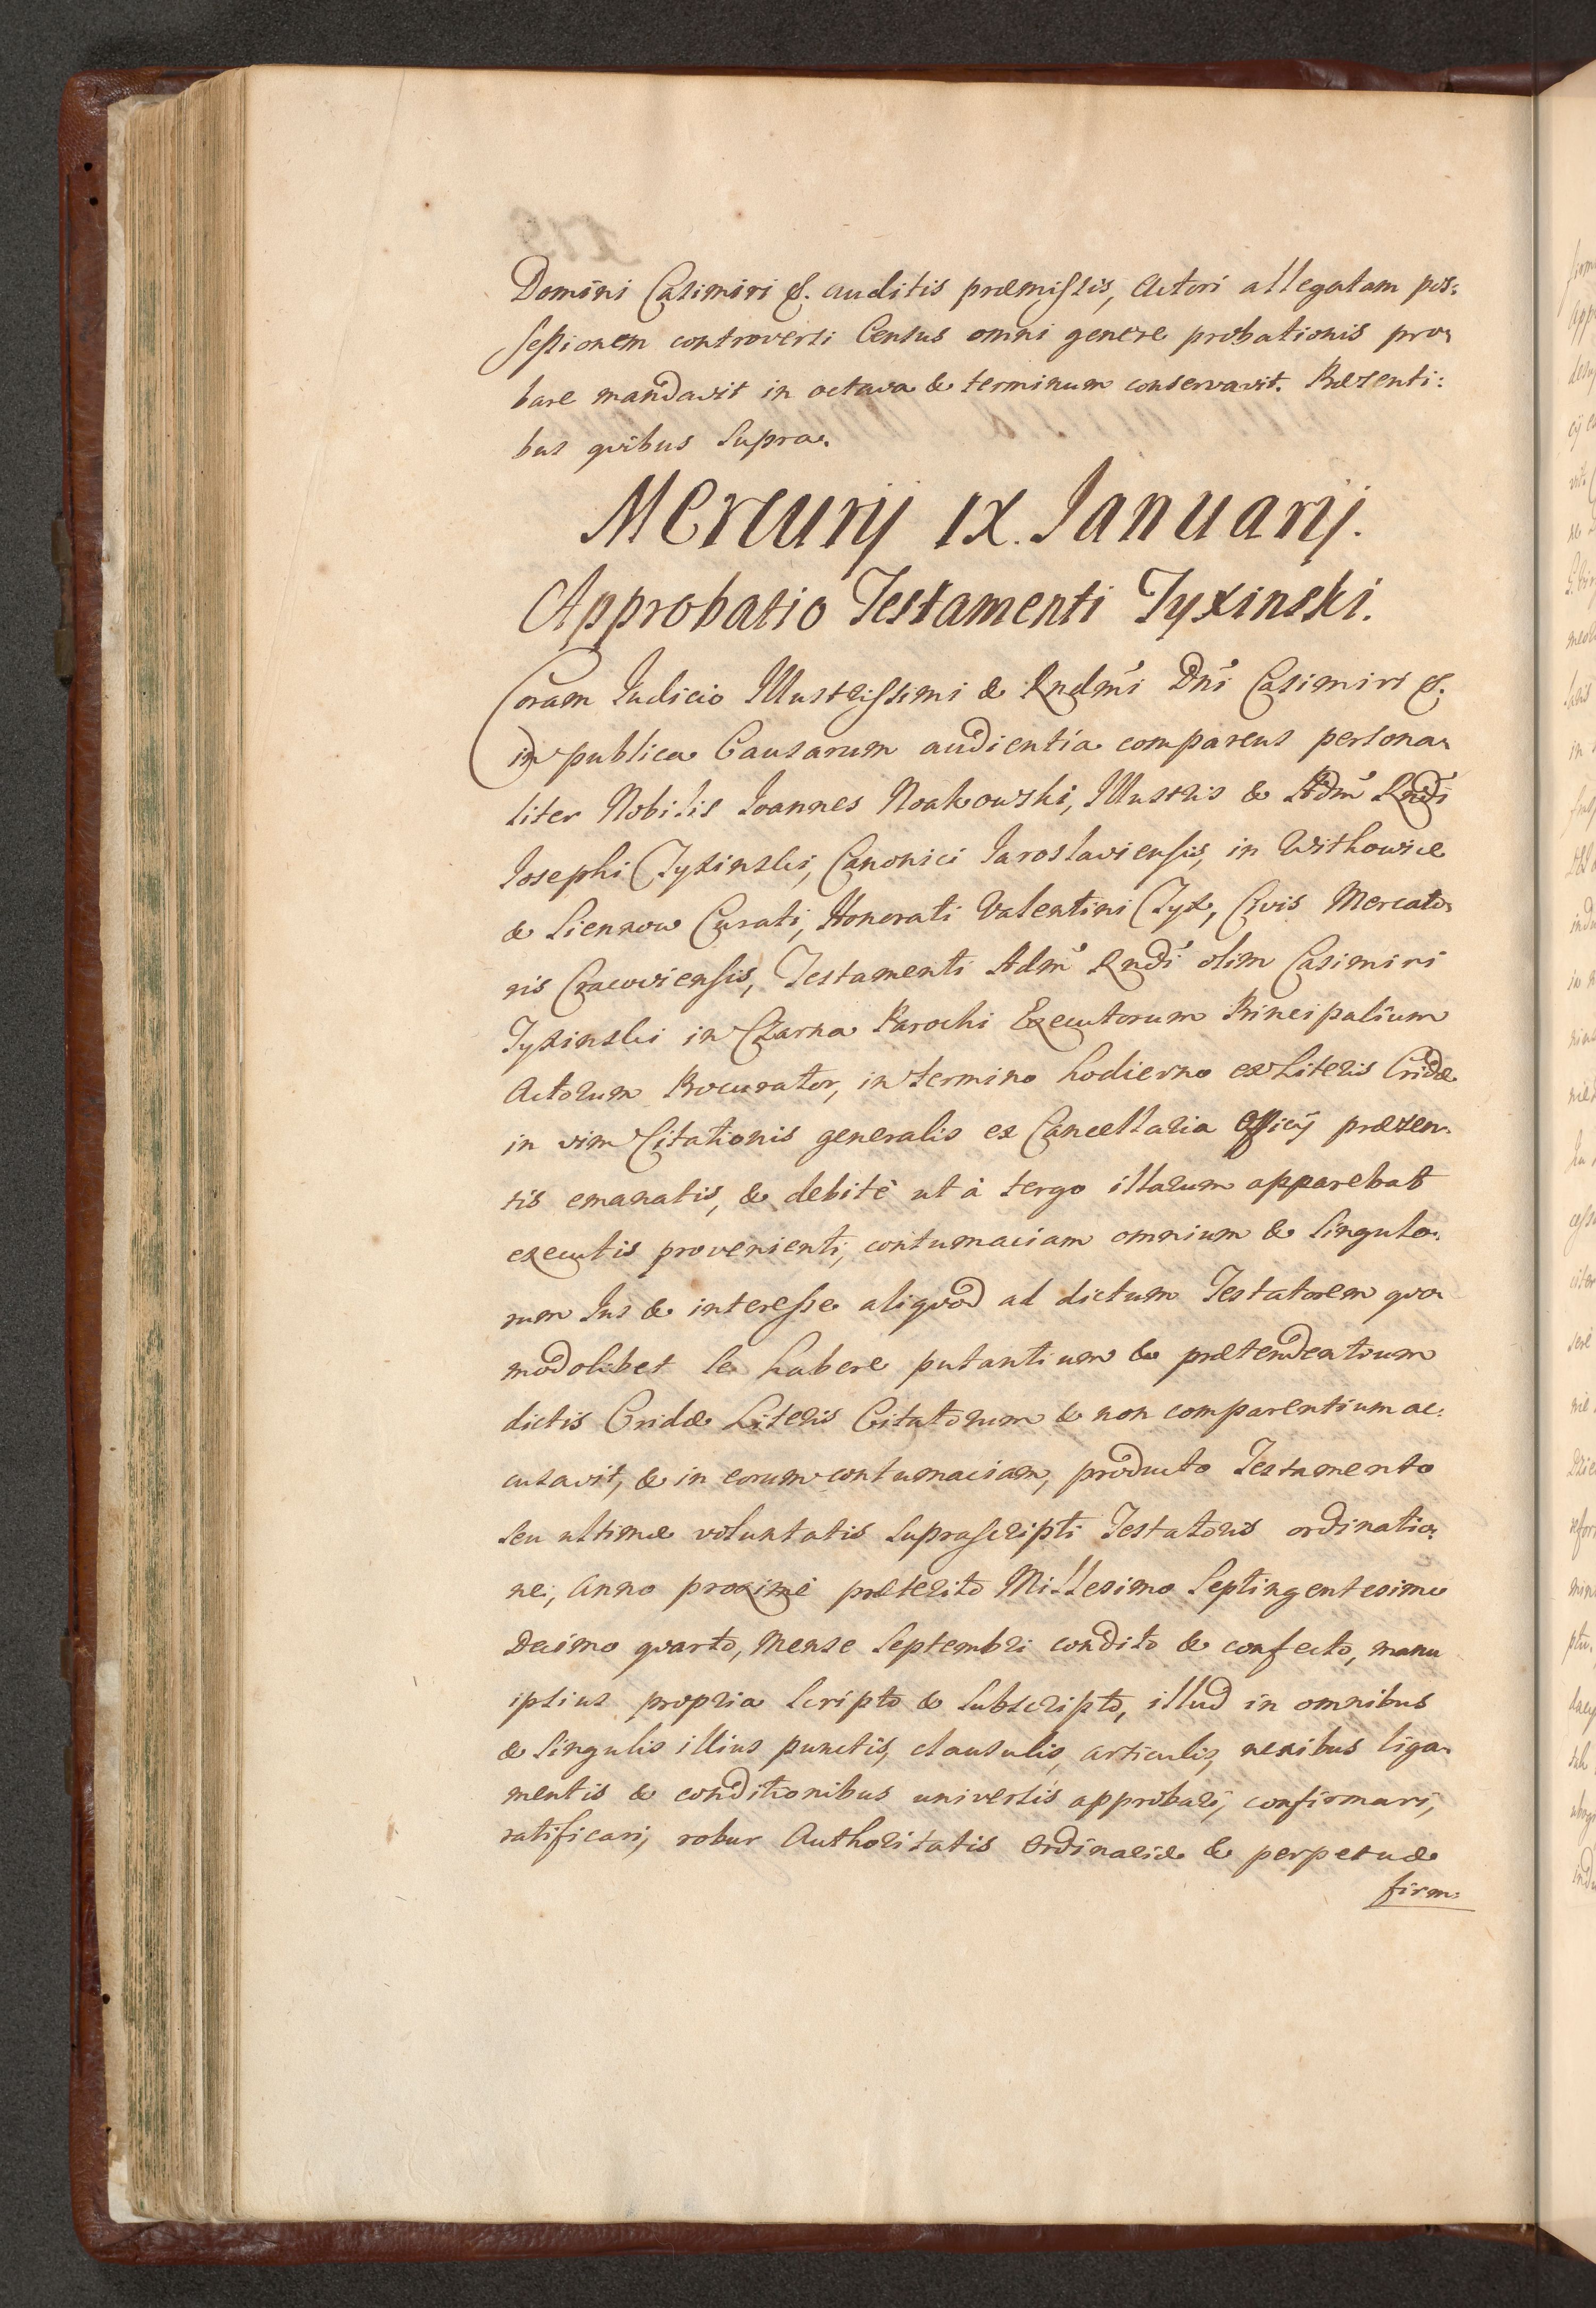 Domini Casimiri &. auditis præmissis, Actori allegatam pos:
sessionem controversi Census omni genere probationis pro:
bare mandavit in octava & terminum conservavit. Præsenti:
bus quibus supra.
Mercurij IX. Ianuarij.
Approbatio Testamenti Tyxinski.
Coram Iudicio Illustrissimi & Rndmi Dni Casimiri &.
in publica Causarum audientia comparens persona:
liter Nobilis Ioannes Noakowski, Illustris & Adm Rndi
Iosephi Tyxinski, Canonici Iaroslaviensis, in Withowice
& Siennow Curati, Honorati Valentini Tyx, Civis Mercato:
ris Cracoviensis, Testamenti Adm Rndi olim Casimiri
Tyxinski in Czarna Parochi Executorum Principalium
Actorum Procurator, in termino hodierno ex Literis Cridæ
in vim Citationis generalis ex Cancellaria Officij præsen:
tis emanatis, & debitè ut à tergo illarum apparebat
executis provenienti, contumaciam omnium & singulo:
rum Ius & interesse aliquod ad dictum Testatorem quo:
modolibet se habere putantium & prætendentium
dictis Cridæ Literis Citatorum & non comparentium ac:
cusavit, & in eorum contumaciam, producto Testamento
seu ultimæ voluntatis suprascripti Testatoris ordinatio:
ne, Anno proximè præterito Millesimo Septingentesimo
Decimo quarto, Mense Septembri condito & confecto, manu
ipsius propria scripto & subscripto, illud in omnibus
& singulis illius punctis, clausulis, articulis, nexibus liga:
mentis & conditionibus universis approbari, confirmari,
ratificari, robur Authoritatis Ordinariæ & perpetuæ
firm: